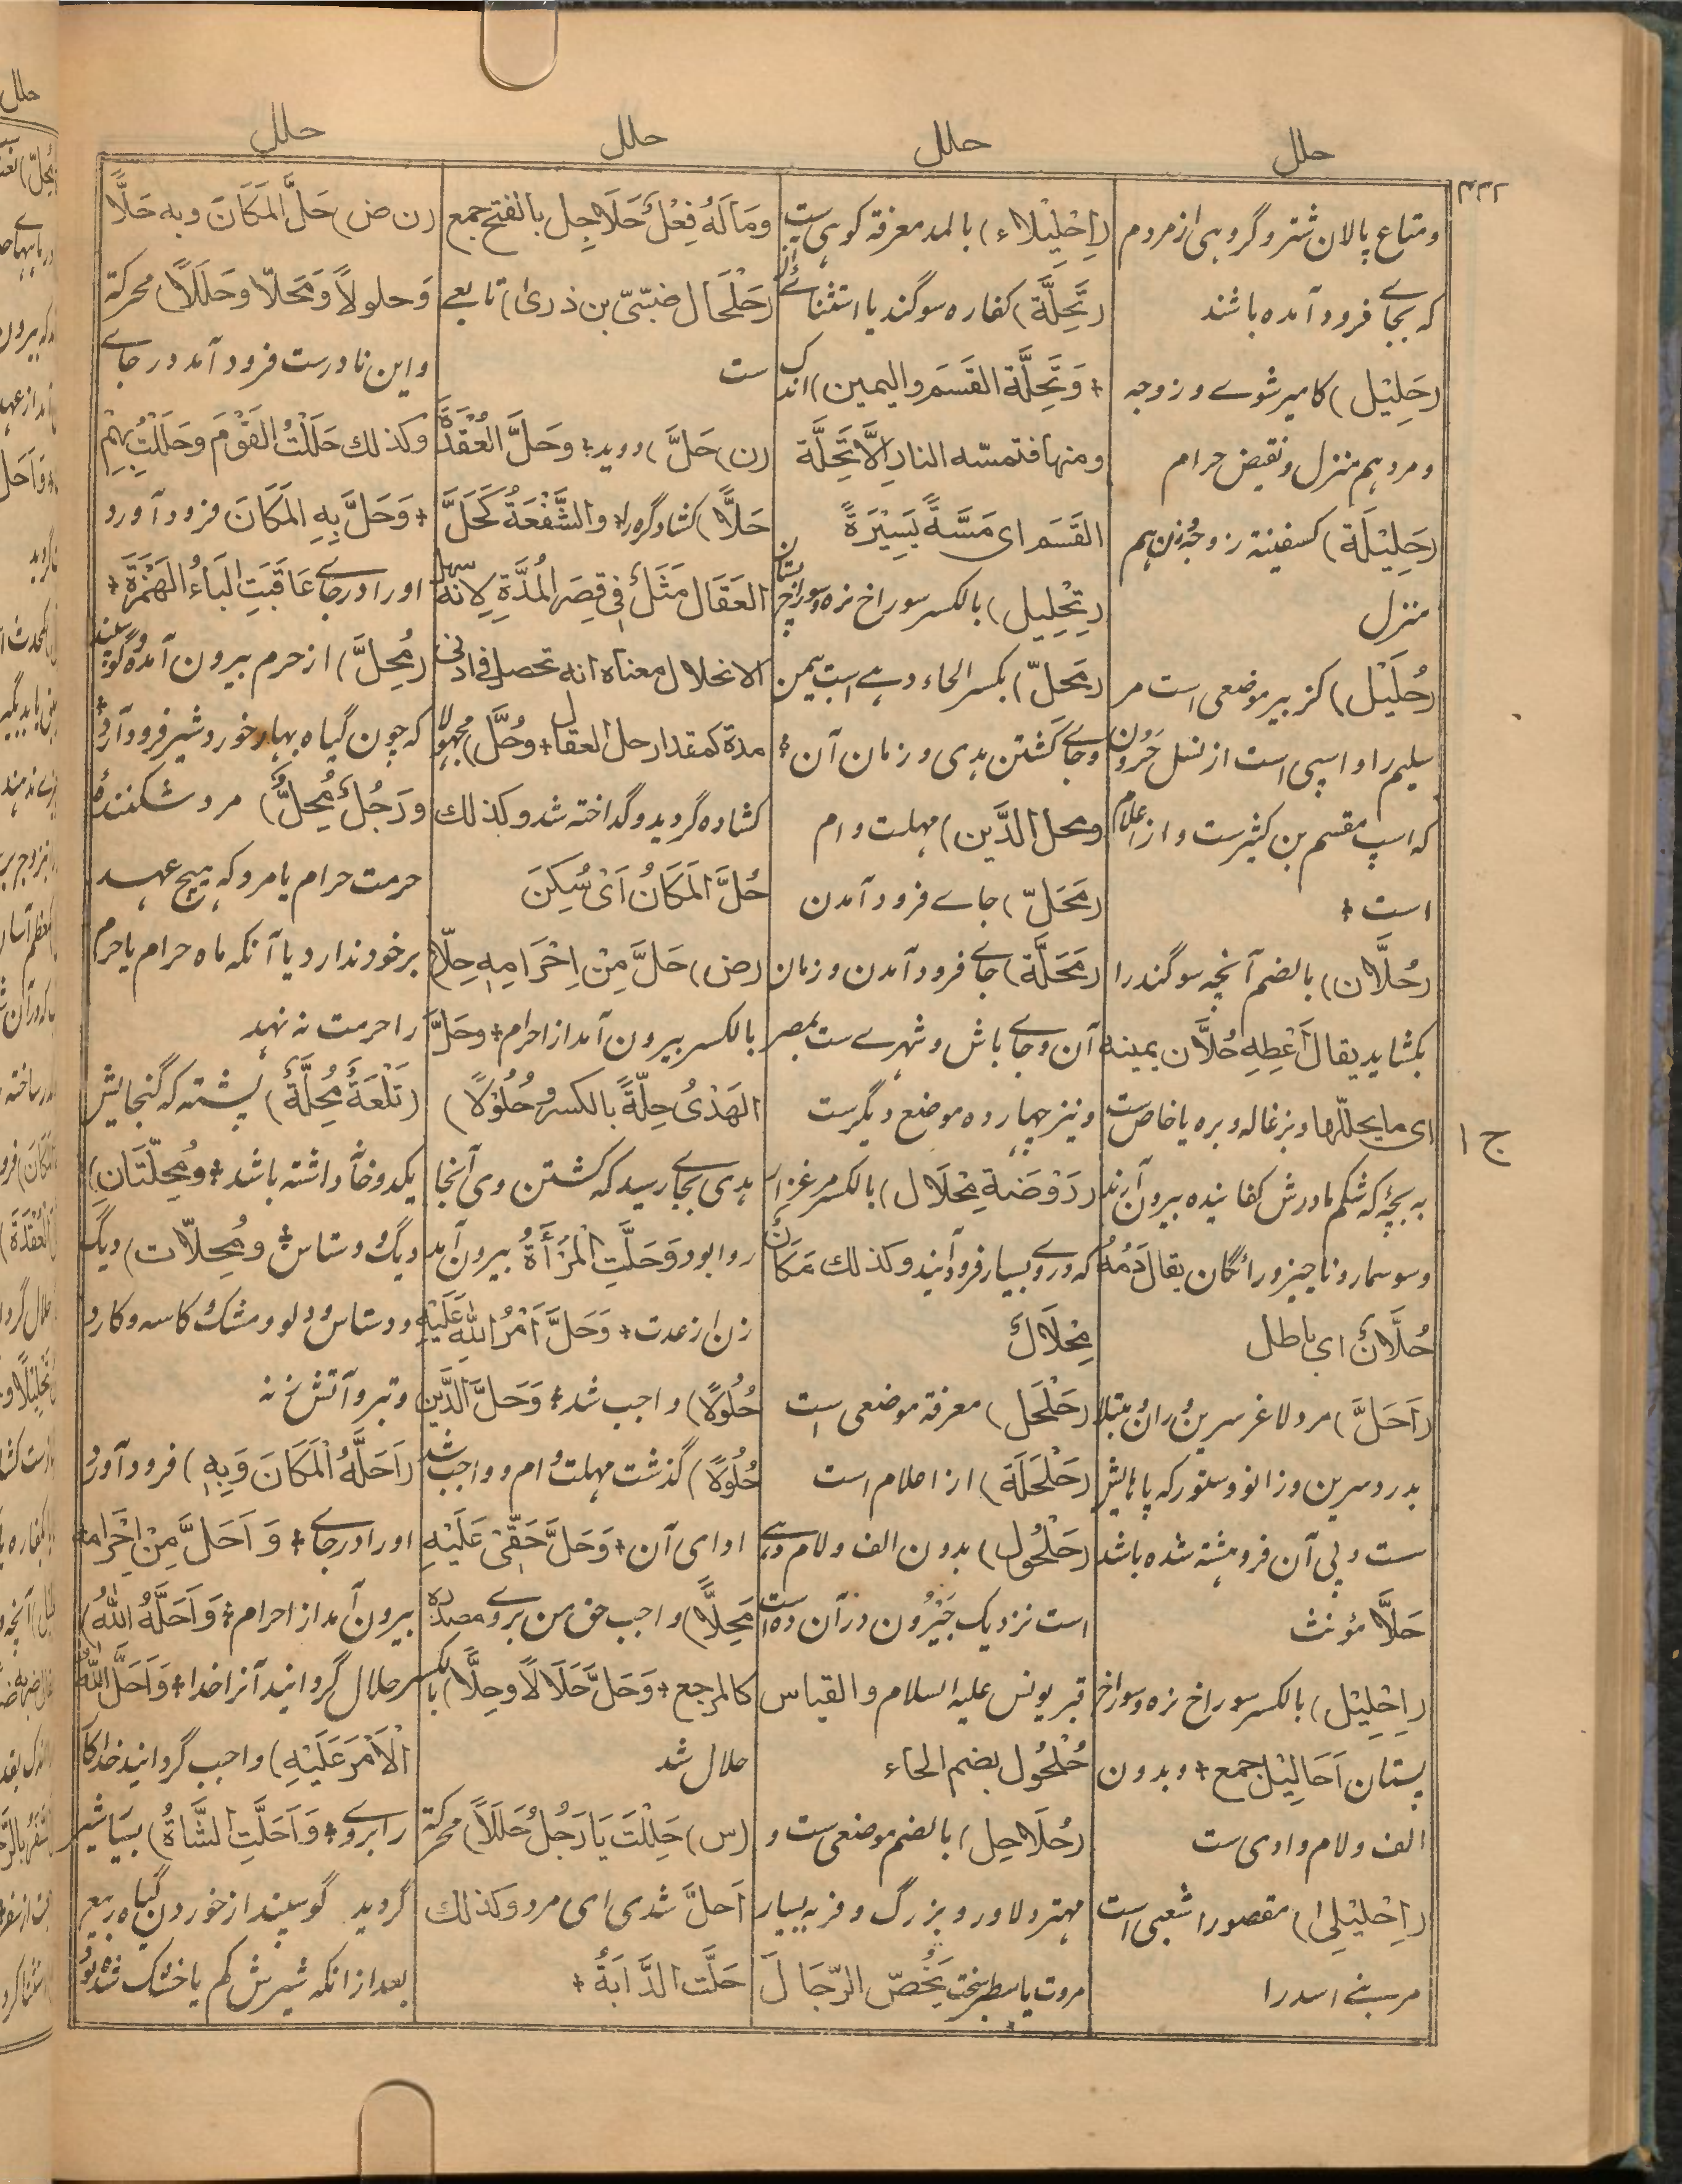 حلل
حلل
حلل
حلل
ومتاع پالان شتر و گروهی از مردم
که بجای فرود آمده باشند
(حَلِیْل) کامیر شوے و زوجه
و مرد هم منزل و نقیض حرام
(حَلِیْلَة) کسفینة زوجه زن هم
منزل
(حُلَیْل) کزبیر موضعی است مر
سلیم را و اسپی است از نسل حَرُون
که اسپ مقسم بن کثیرست و از اعلام
است +
(حُلَّان) بالضم آنچه سوگند را
بکشاید یقال اَعْطِهِ حُلَّان یمینه
ای ما یحلّلها و بزغاله و بره یا خاص ست
به بچّه که شکم مادرش کفانیده بیرون آرند
و سوسمار و ناچیز و رائگان یقال دَمُهُ
حُلَّانٌ ای باطل
(اَحَلّ) مرد لاغر سرین و ران و مبتلا
بدرد سرین و زانو و ستور که پاهایش
ست و پی آن فروهشته شده باشد
حَلَّا مؤنث
(اِحْلِیْل) بالکسر سوراخ نره و سوراخ
پستان اَحَالِیْل جمع + و بدون
الف و لام وادی ست
(اِحْلِیْلی) مقصورا شعبی است
مر بنے اسد را
(اِحْلِیْلَاء) بالمد معرفة کوهی ست
(تَحِلَّة) کفاره سوگند یا استثنائے
+ وَتَحِلَّة القَسَم والیمین) اندک
ومنها فتمسّه النار اِلَّا تَحِلَّة
القَسَم ای مَسَّةً یَسِیْرَةً
(تِحْلِیل) بالکسر سوراخ نره و سوراخ پستان
(مَحِلّ) بکسر الحاء دهے است بیمن
و جاے کشتن هدی و زمان آن +
ومحل الدَّین) مهلت وام
(مَحَلّ) جاے فرود آمدن
(مَحَلَّة) جاے فرود آمدن و زمان
آن و جاے باش و شهرے ست بمصر
و نیز چهارده موضع دیگرست
(رَوْضَة مِحْلَال) بالکسر مرغزار
که دروے بسیار فرود آیند وکذلك مَکَانٌ
مِحْلَالٌ
(حَلْحَل) معرفة موضعی است
(حَلْحَلَة) از اعلام است
(حَلْحُول) بدون الف و لام دهے
است نزدیک جَیْرُون در آن ده است
قبر یونس علیه السلام والقیاس
حُلْحُول بضم الحاء
(حُلَاحِل) بالضم موضعی ست و
مهتر دلاور و بزرگ و فربه بسیار
مروت یا سطبر سخت یَخُصّ الرّجَالَ
وَمَالَهُ فِعْلٌ حَلَاحِل بالفتح جمع
(حَلْحَال ضبّیّ بن ذری) تابعے
ست
(ن) حَلَّ) دوید + وحَلَّ العُقْدَةَ
حَلًّا) کشاد گره را + والشُّفْعَةُ کَحَلِّ
العَقَال مَثَلٌ فی قِصَرِ المُدَّةِ لانه سهل
الانحلال معناه انه تحصل فی ادنی
مدة کمقدار حل العقال + وحُلَّ) مجهولا
کشاده گردید و گداخته شد وکذلك
حُلَّ المَکَانُ اَیْ سُکِنَ
(ض) حَلَّ مِنْ اِحْرَامِهٖ حِلًّا)
بالکسر بیرون آمد از احرام + وحَلَّ
الهَدْیُ حِلَّةً بالکسر وحُلُوْلًا)
هدی بجاے رسید که کشتن وی آنجا
روا بود وَحَلَّتِ المَرْأَةُ بیرون آمد
زن از عدت + وَحَلَّ اَمْرُ اللهِ عَلَیْهِ
حُلُولًا) واجب شد + وَحَلَّ الدَّین
حُلُولًا) گذشت مهلت وام و واجب شد
ادای آن + وَحَلَّ حَقِّیْ عَلَیْهِ
مَحِلًّا) واجب حق من بروے مصدره
کالمرجع + وَحَلَّ حَلَالًا وحِلًّا) بالکسر
حلال شد
(س) حَلِلْتَ یَا رَجُلُ حَلَلًا) محرکة
اَحَلّ شدی ای مرد وکذلك
حَلَّت الدَّابَةُ +
(ن ض) حَلَّ المَکَانَ وبه حَلًّا
وَحلولاً وَمَحَلّا وَحَلَلًا) محرکة
و این نادرست فرود آمد در جاے
وکذلك حَلَلْتُ القَوْمَ وحَلَلْتُ بِهِمْ
+ وَحَلَّ بِهِ المَکَانَ فرود آورد
او را در جاے عَاقَبَتِ البَاءُ الهَمْزَةَ +
(مُحِلّ) از حرم بیرون آمده و گوسپند
که چون گیاه بهار خورد شیر فرود آرد +
ورَجُلٌ مُحِلٌّ) مرد شکننده
حرمت حرام یا مرد که هیچ عهد
بر خود ندارد یا آنکه ماه حرام یا حرم
را حرمت نه نهد
(تَلْعَةٌ مُحِلَّةٌ) پشته که گنجایش
یکدو خانه داشته باشد + ومُحِلَّتَانِ)
دیگ و دستاس + ومُحِلّات) دیگ
و دستاس و دلو و مشک و کاسه و کارد
و تبر و آتش زنه
(اَحَلَّهُ الْمَکَانَ وَبِهٖ) فرود آورد
او را در جاے + وَاَحَلَّ مِنْ اِحْرَامِه
بیرون آمد از احرام + وَاَحَلَّهُ اللهُ)
حلال گردانید آنرا خدا + وَاَحَلَّ اللهُ
الْاَمْرَ عَلَیْهِ) واجب گردانید خدا کار
را بروے + وَاَحَلَّتِ الشَّاةُ) بسیار شیر
گردید گوسپند از خوردن گیاه ربیع
بعد از انکه شیرش کم یا خشک شده بود
ج ۱